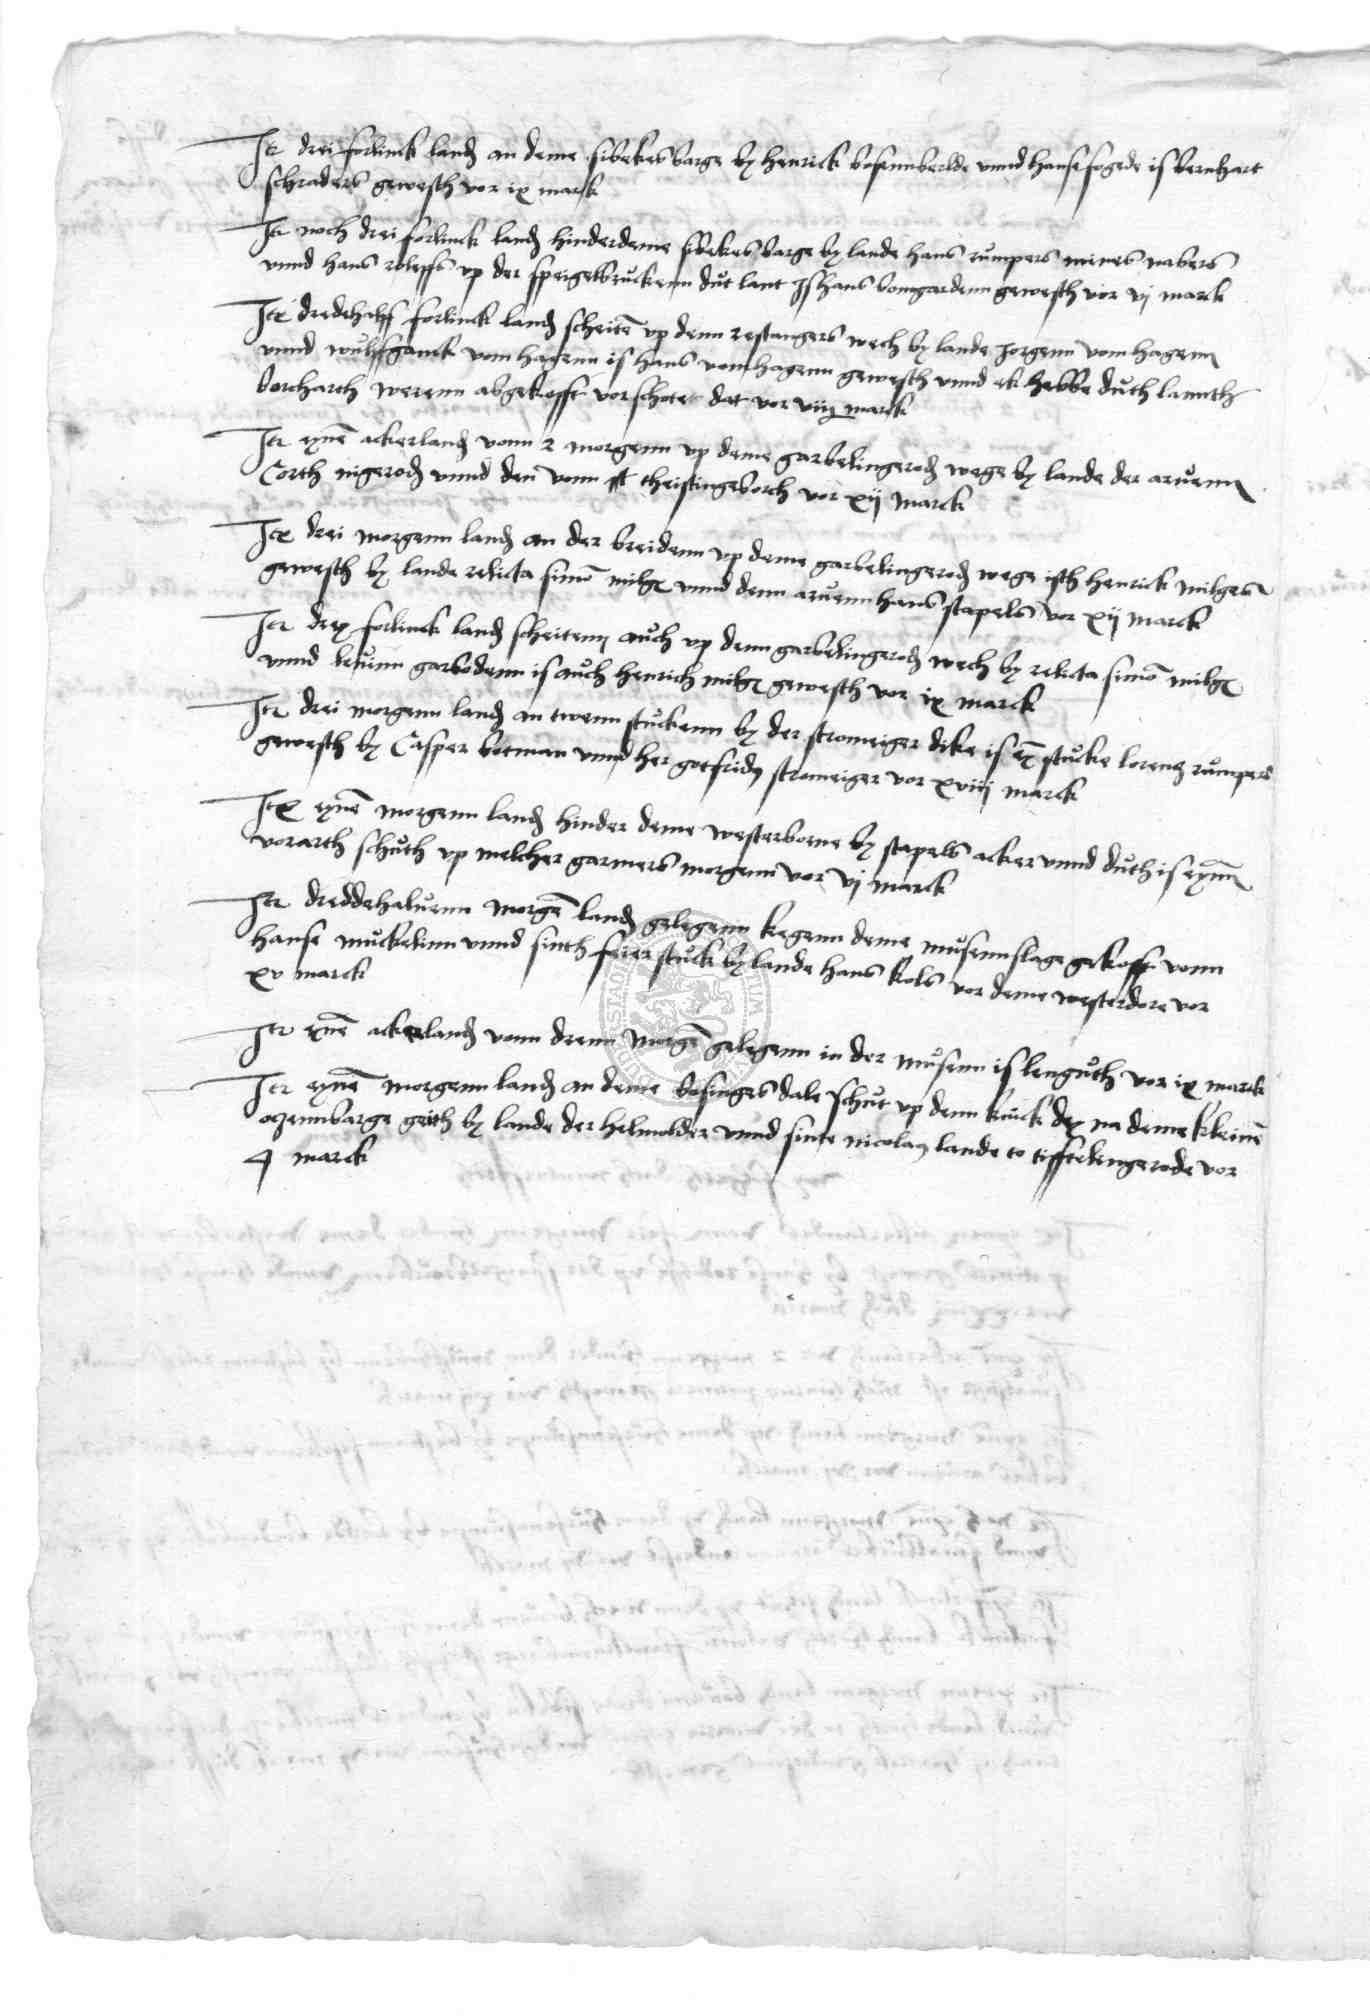 Itē drei forlinck landꝫ an deme sibekesbarge by Henrick bosennberlde vnnd Hanse fogede is Bernhart
schraders gewesth vor ix marck
Itē noch drei forlinck landꝫ hinderdeme sibekesbarge by lande Hans rumpers mines nabers
vnnd Hans roleffs vp der speigelbruckenn dut lant Is Hans bomgardenn gewesth vor vj marck
Itē dredehalff forlinck landꝫ scheitē vp denn restangers wech by lande Jorgenn vom Hagenn
vnnd wulffganck vom Hagenn is Hans vom Hagenn gewesth vnnd ek Hebbe duth lannth
borcharch werenn abgekofft vorschotet dat vor viij marck
Itē eynē ackerlandꝫ vonn 2 morgenn vp deme garbelingerodꝫ wege by lande der aruenn
Corth nigerodꝫ vnnd den vonn theistingeborch vor xij marck
Itē drei morgenn landꝫ an der breidenn vp deme garbelingerodꝫ wege isth Henrick milges
gewesth by lande relicta simō milgꝫ vnnd denn aruenn Hans stapels vor xij marck
Itē drey forlinck landꝫ scheitenn auch vp denn garbelingerodꝫ wech by relicta simō milgꝫ
vnnd leuinn garbodenn is auch Henrich milgꝫ gewesth vor ix marck
Itē drei morgenn landꝫ an twenn stuckenn by der stromeiger dike is eȳ stucke lorentz rumpers
gewesth by Casper botman vnnd Her gotfridꝫ stromeiger vor xviij marck
Itē eynē morgenn landꝫ Hinder deme westerborne by stapels acker vnnd duth is eynn
vorarth schuth vp melcher garmers morgenn vor vj marck
Itē dreddehaluenn morgē landꝫ gelegenn kegenn deme musennslage gekofft vonn
Hanse muckelinn vnnd sinth feier stuck by lande Hans kols vor deme westerdore vor
xv marck
Itē eynē ackerlandꝫ vonn drenn morgē gelegenn in der musenn is lenguth vor ix marck
Itē eynē morgenn landꝫ an deme bosinges dale schut vp denn knick dey na deme kleinē
ozennbarge geith by lande der Helmolder vnnd sinte nicolaꝫ lande to tifftelingerode vor
4 marck